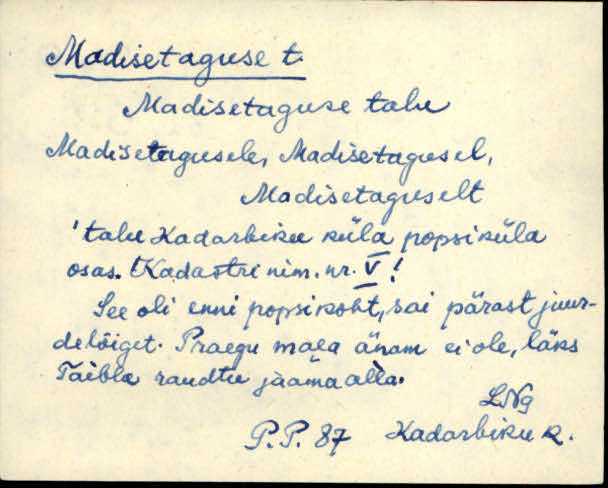 Madisetaguse t.
Madisetaguse talu
Madisetagusele, Madisetagusel,
Madisetaguselt
'talu Kadarbiku küla popsiküla
osas. Kadastri nim. nr. V!
See oli enni popsikoht, sai pärast juur-
delõiget. Praegu maea änam ei ole, läks
Taibla raudtee jaama alla.
LNg
P.P. 87 Kadarbiku k.